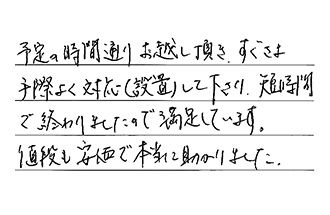 予定の時間通りお越し頂き、すぐさま
手際よく対応(設置)して下さり、短時間
で終わりましたので満足しています。
値段も安価で本当に助かりました。